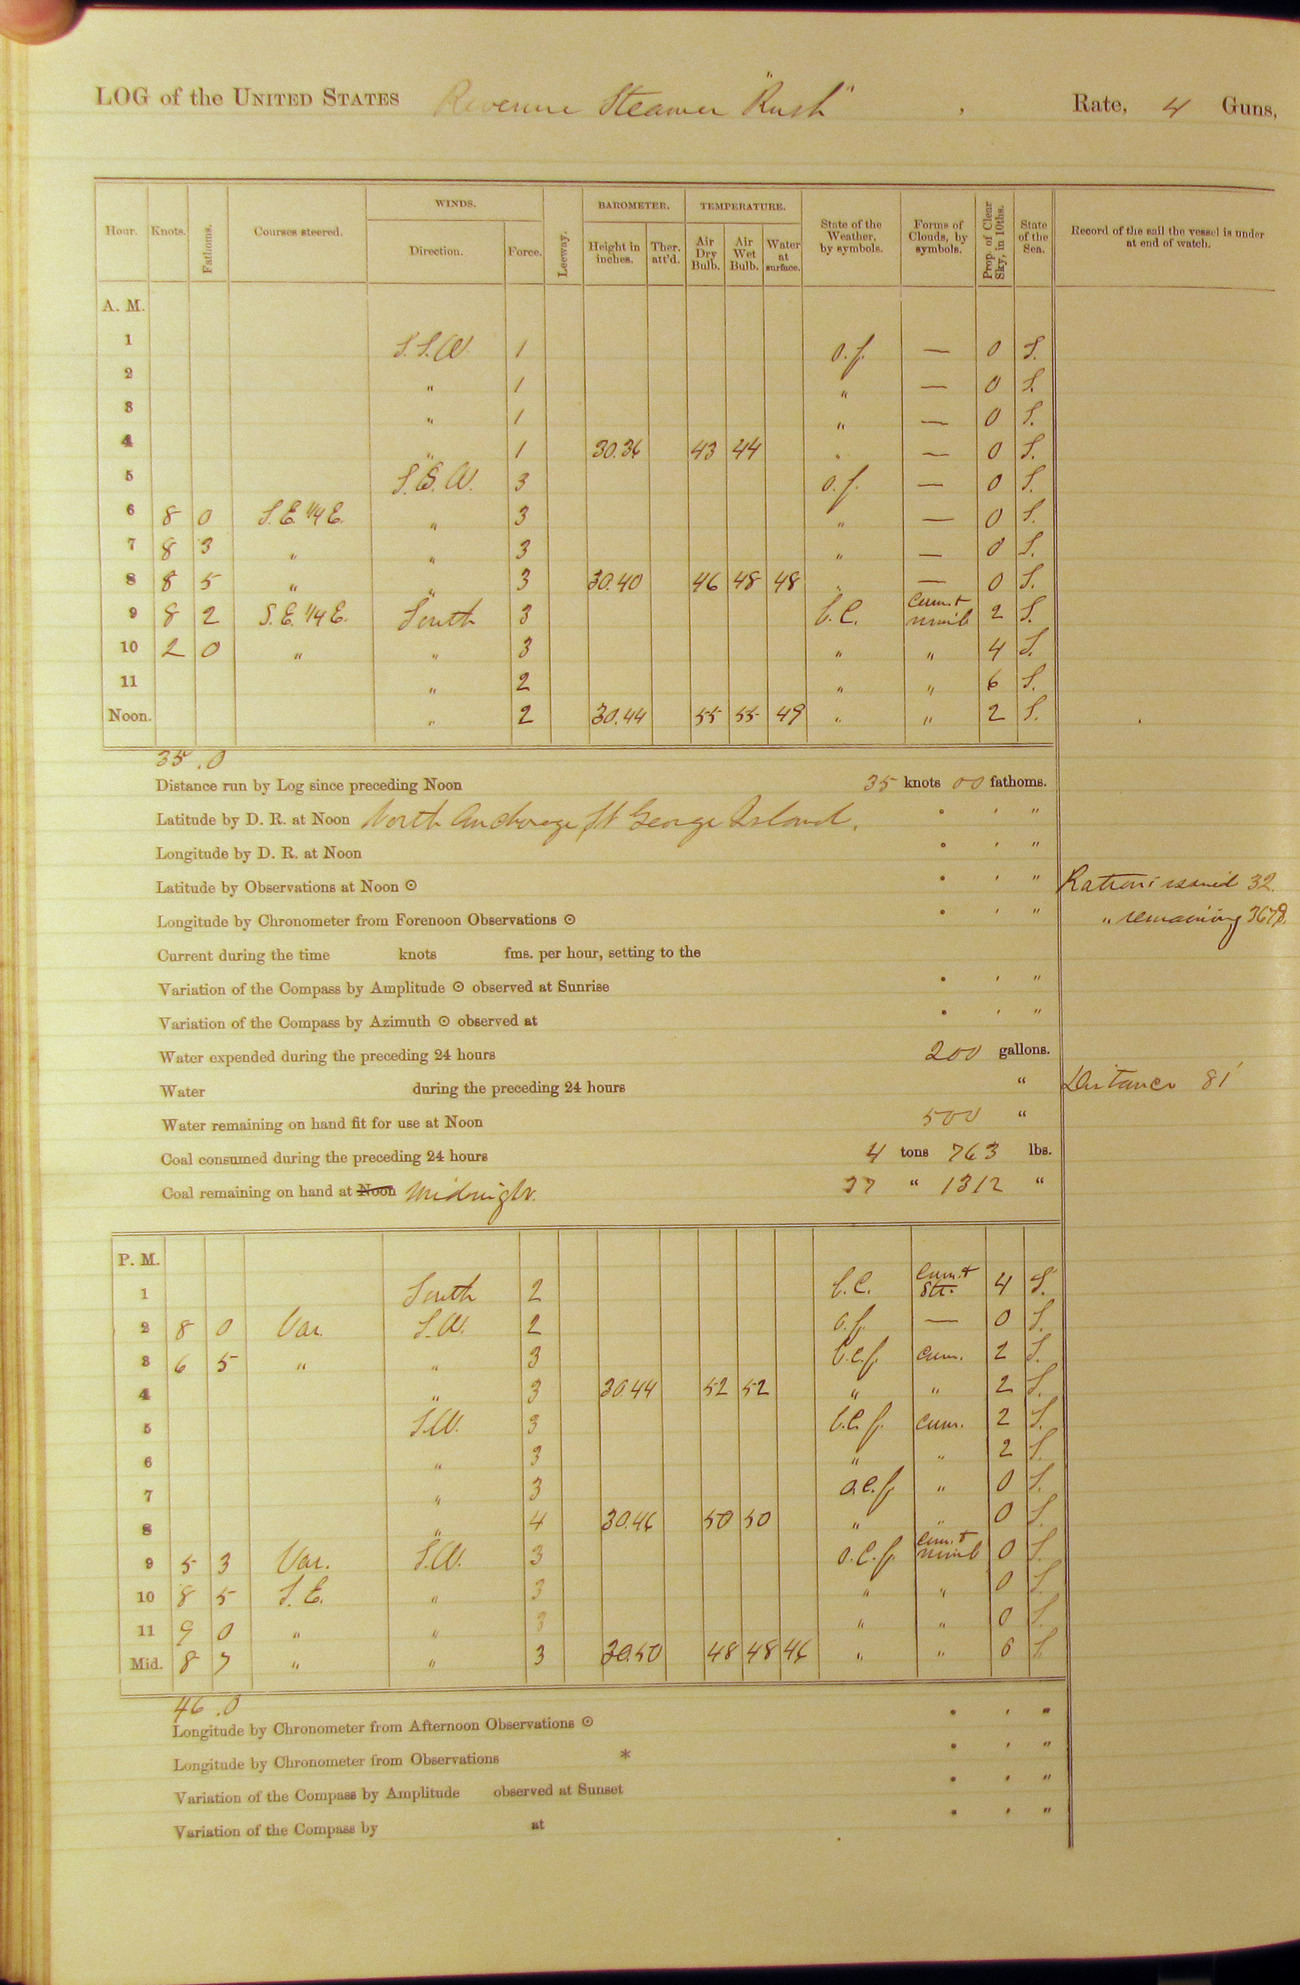 LOG of the UNITED STATES Revenue Steamer "Rush" , Rate, 4 Guns,
Hour. Knots. Fathoms. Courses steered. WINDS. Direction. Force. Leeway. BAROMETER. Height in inches. Ther. att'd. TEMPERATURE. Air Dry Bulb. Air Wet Bulb. Water at surface. State of the Weather, by symbols. Forms of Clouds, by symbols. Prop. of Clear Sky, in 10ths. State of the Sea. Record of the sail the vessel is under at end of watch.
A. M.
1 S.S.W. 1 o.f. — 0 S.
2 " 1 " — 0 S.
3 " 1 " — 0 S.
4 " 1 30.36 43 44 " — 0 S.
5 S.S.W. 3 o.f. — 0 S.
6 8 0 S.E. 1/4 E. " 3 " — 0 S.
7 8 3 " " 3 " — 0 S.
8 8 5 " " 3 30.40 46 48 48 " — 0 S.
9 8 2 S.E. 1/4 E. South 3 b.c. Cum. & nimb 2 S.
10 2 0 " " 3 " " 4 S.
11 " 2 " " 6 S.
Noon. " 2 30.44 55 55 49 " " 2 S.
35.0
Distance run by Log since preceding Noon 35 knots 00 fathoms.
Latitude by D. R. at Noon North Anchorage St George Island. ° ' "
Longitude by D. R. at Noon ° ' "
Latitude by Observations at Noon ⊙ ° ' " Rations issued 32.
Longitude by Chronometer from Forenoon Observations ⊙ ° ' " " remaining 3678.
Current during the time knots fms. per hour, setting to the
Variation of the Compass by Amplitude ⊙ observed at Sunrise ° ' "
Variation of the Compass by Azimuth ⊙ observed at ° ' "
Water expended during the preceding 24 hours 200 gallons.
Water during the preceding 24 hours " Distance 81'
Water remaining on hand fit for use at Noon 500 "
Coal consumed during the preceding 24 hours 4 tons 763 lbs.
Coal remaining on hand at Noon Midnight. 37 " 1312 "
P. M.
1 South 2 b.c. Cum. & Str. 4 S.
2 8 0 Var. S.W. 2 o.f. — 0 S.
3 6 5 " " 3 b.c.f. Cum. 2 S.
4 " 3 30.44 52 52 " " 2 S.
5 S.W. 3 b.c.f. Cum. 2 S.
6 " 3 " " 2 S.
7 " 3 o.c.f. " 0 S.
8 " 4 30.46 50 50 " " 0 S.
9 5 3 Var. S.W. 3 o.c.f. Cum. & nimb 0 S.
10 8 5 S.E. " 3 " " 0 S.
11 9 0 " " 3 " " 0 S.
Mid. 8 7 " " 3 30.50 48 48 46 " " 0 S.
46.0
Longitude by Chronometer from Afternoon Observations ⊙ ° ' "
Longitude by Chronometer from Observations * ° ' "
Variation of the Compass by Amplitude observed at Sunset ° ' "
Variation of the Compass by at ° ' "